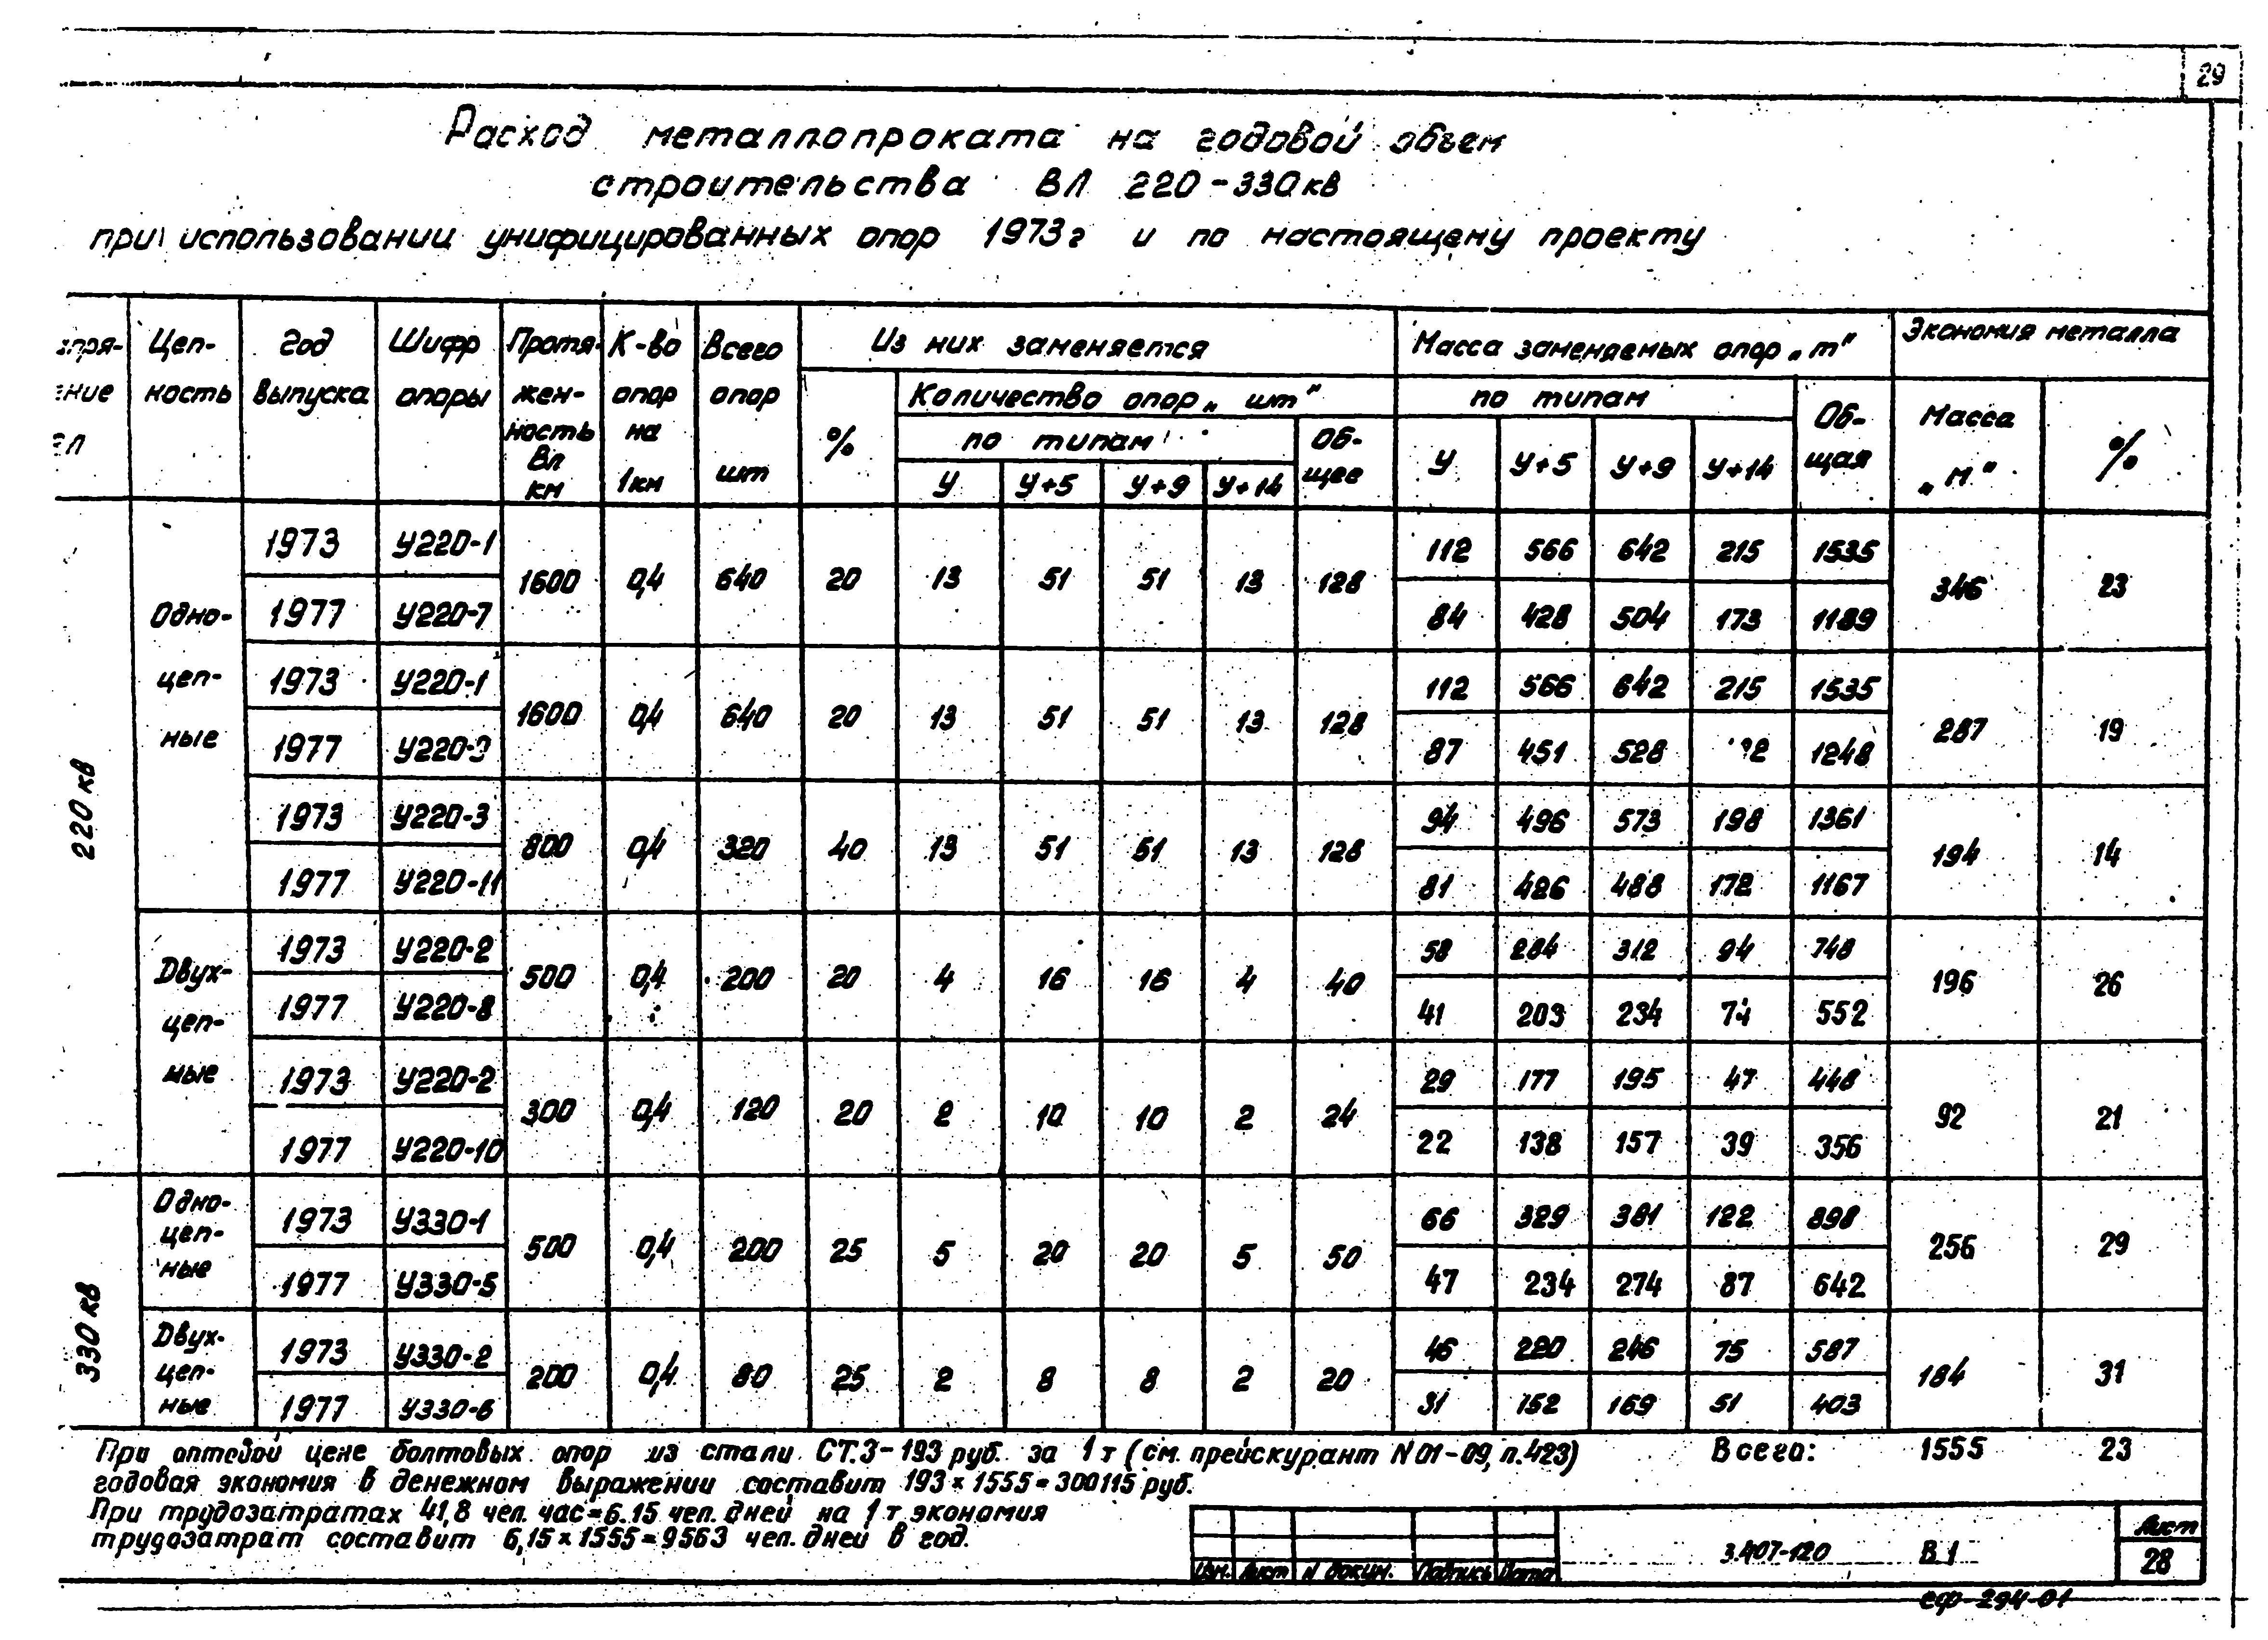 29
Расход металлопроката на годовой объем
строительства ВЛ 220-330кв
при использовании унифицированных опор 1973г и по настоящему проекту
Цеп-
ность
Год
выпуска
Шифр
опоры
Протя-
жен-
ность
Вл
км
К-во
опор
на
1км
Всего
опор
шт
Из них заменяется
%
Количество опор „шт"
по типам
У У+5 У+9 У+14
Об-
щее
Масса заменяемых опор „т"
по типам
У У+5 У+9 У+14
Об-
щая
Экономия металла
Масса
„м"
%
220 кв
Одно-
цеп-
ные
1973 У220-1 112 566 642 215 1535
1600 0,4 640 20 13 51 51 13 128 346 23
1977 У220-7 84 428 504 173 1189
1973 У220-1 112 566 642 215 1535
1600 0,4 640 20 13 51 51 13 128 287 19
1977 87 451 528 1248
1973 У220-3 94 496 573 198 1361
800 0,4 320 40 13 51 51 13 128 194 14
1977 У220-11 81 426 488 172 1167
Двух-
цеп-
ные
1973 У220-2 58 284 312 94 748
500 0,4 200 20 4 16 16 4 40 196 26
1977 У220-8 41 203 234 74 552
1973 У220-2 29 177 195 47 448
300 0,4 120 20 2 10 10 2 24 92 21
1977 У220-10 22 138 157 39 356
330 кв
Одно-
цеп-
ные
1973 У330-1 66 329 381 122 898
500 0,4 200 25 5 20 20 5 50 256 29
1977 У330-5 47 234 274 87 642
Двух-
цеп-
ные
1973 У330-2 46 220 246 75 587
200 0,4 80 25 2 8 8 2 20 184 31
1977 У330-6 31 152 169 51 403
При оптовой цене болтовых опор из стали СТ.3-193 руб. за 1 т (см. прейскурант N01-09, п.423) Всего: 1555 23
годовая экономия в денежном выражении составит 193×1555=300115 руб.
При трудозатратах 41,8 чел. час=6.15 чел. дней на 1 т экономия
трудозатрат составит 6,15×1555=9563 чел. дней в год.
Изм. Лист N докум. Подпись Дата
3.407-120 В1
Лист
28
сф-294-01